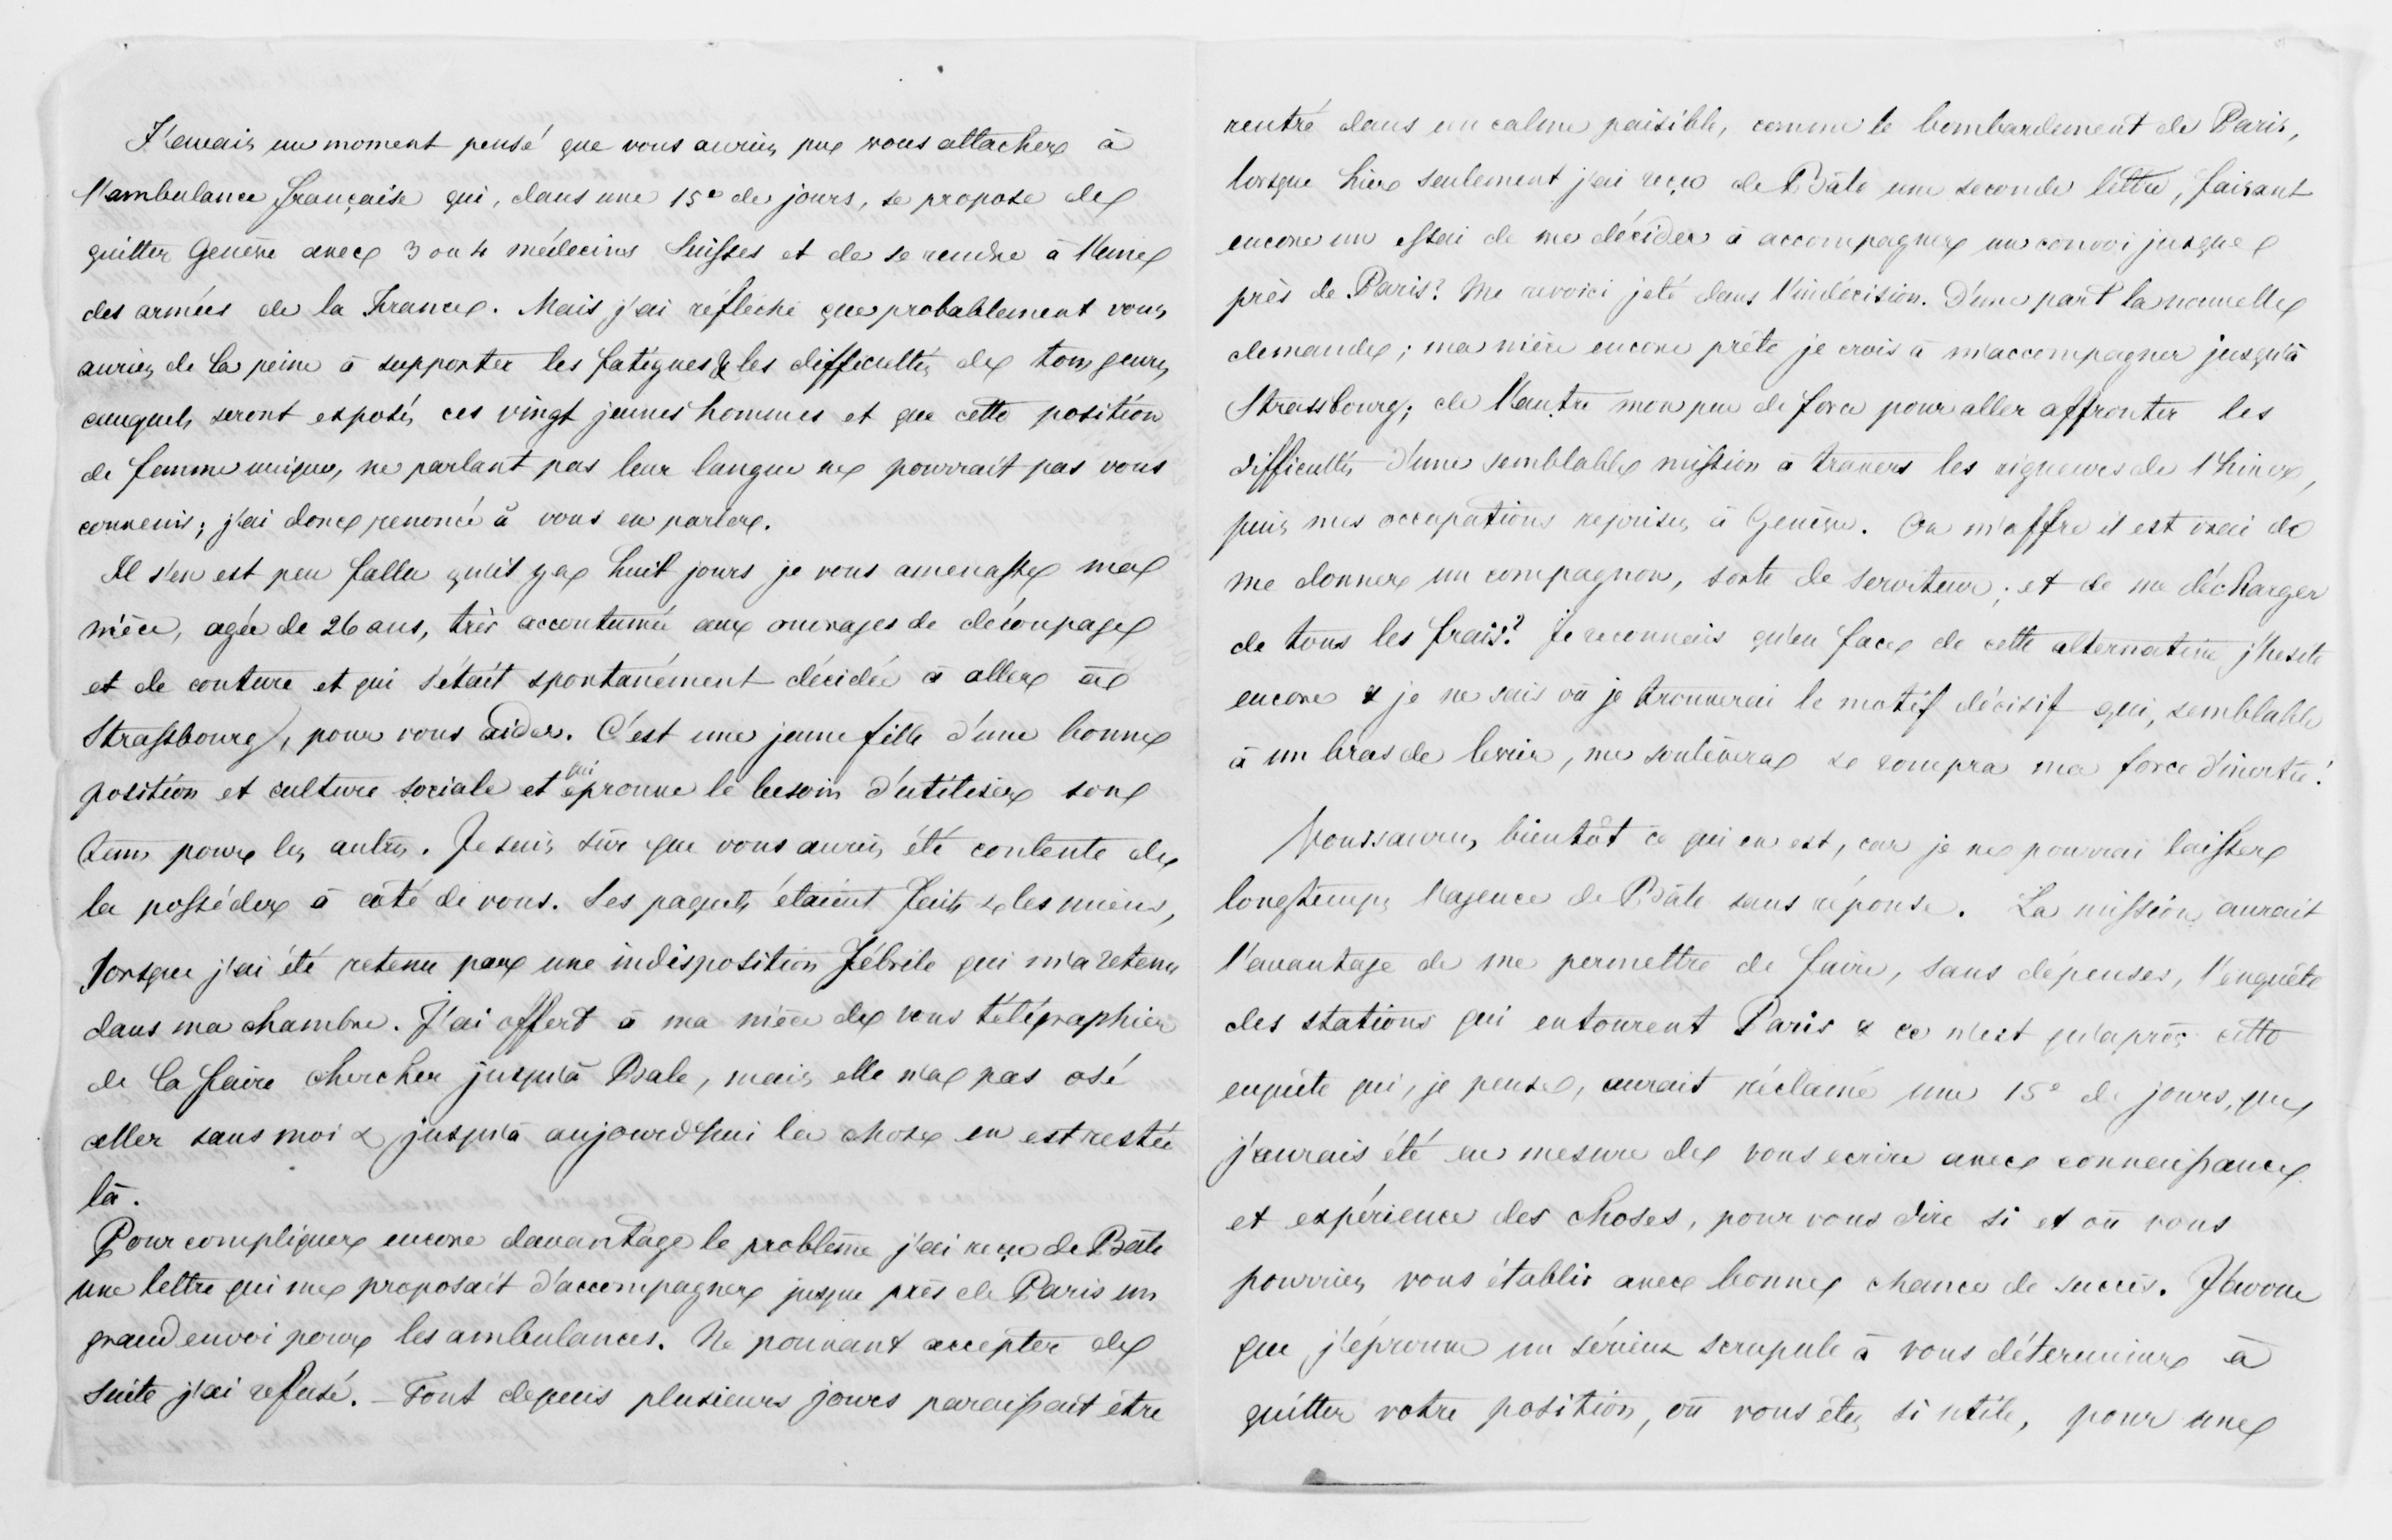 J'avais un moment pensé que vous auriez pu vous attacher à
l'ambulance française qui, dans une 15e de jours, se propose de
quitter Genève avec 3 ou 4 médecins Suisses et de se rendre à l'une
des armées de la France. Mais j'ai réflechi que probablement vous
auriez de la peine à supporter les fatigues & les difficultés de tous genres
auxquels seront exposés ces vingt jeunes hommes et que cette position
de femme unique, ne parlant pas leur langue ne pourrait pas vous
convenir; j'ai donc renoncé à vous en parler.
Il s'en est peu fallu qu'il y a huit jours je vous amenasse ma
nièce, agée de 26 ans, très accoutumée aux ouvrages de découpage
et de couture et qui s'était spontanément décidée à aller à
Strassbourg, pour vous aider. C'est une jeune fille d'une bonne
position et culture sociale et qui éprouve le besoin d'utiliser son
tems pour les autres. Je suis sûr que vous auriez été contente de
la posséder à côté de vous. Ses paquets étaient faits & les miens,
lorsque j'ai été retenu par une indisposition fébrile qui m'a retenu
dans ma chambre. J'ai offert à ma nièce de vous télégraphier
de la faire chercher jusqu'à Bale, mais elle n'a pas osé
aller sans moi & jusqu'à aujourd'hui la chose en est restée
là.
Pour compliquer encore davantage le problème j'ai reçu de Bâle
une lettre qui me proposait d'accompagner jusque près de Paris un
grand envoi pour les ambulances. Ne pouvant accepter de
suite j'ai refusé. - Tout depuis plusieurs jours paraissait être
rentré dans un calme paisible, comme le bombardement de Paris,
lorsque hier seulement j'ai reçu de Bâle une seconde lettre, faisant
encore un essai de me décider à accompagner un convoi jusque
près de Paris? Me revoici jeté dans l'indécision. D'une part la nouvelle
demande; ma nièce encore prête je crois à m'accompagner jusqu'à
Strassbourg; de l'autre mon peu de force pour aller affronter les
difficultés d'une semblable mission à travers les rigueurs de l'hiver,
puis mes occupations reprises à Genève. On m'offre il est vrai de
me donner un compagnon, sorte de serviteur; et de me décharger
de tous les frais? Je reconnais qu'en face de cette alternative j'hesite
encore & je ne sais où je trouverai le motif décisif qui, semblable
à un bras de levier, me soulèvera & rompra ma force d'inertie!
Vous saurez bientôt ce qui en est, car je ne pourrai laisser
longtemps l'agence de Bâle sans réponse. La mission aurait
l'avantage de me permettre de faire, sans dépenses, l'enquête
des stations qui entourent Paris & ce n'est qu'après cette
enquête qui, je pense, aurait réclamé une 15e de jours, que
j'aurais été en mesure de vous ecrire avec connaissance
et expérience des choses, pour vous dire si et où vous
pourriez vous établir avec bonne chance de succès. J'avoue
que j'éprouve un sérieux scrupule à vous déterminer à
quitter votre position, où vous êtes si utile, pour une